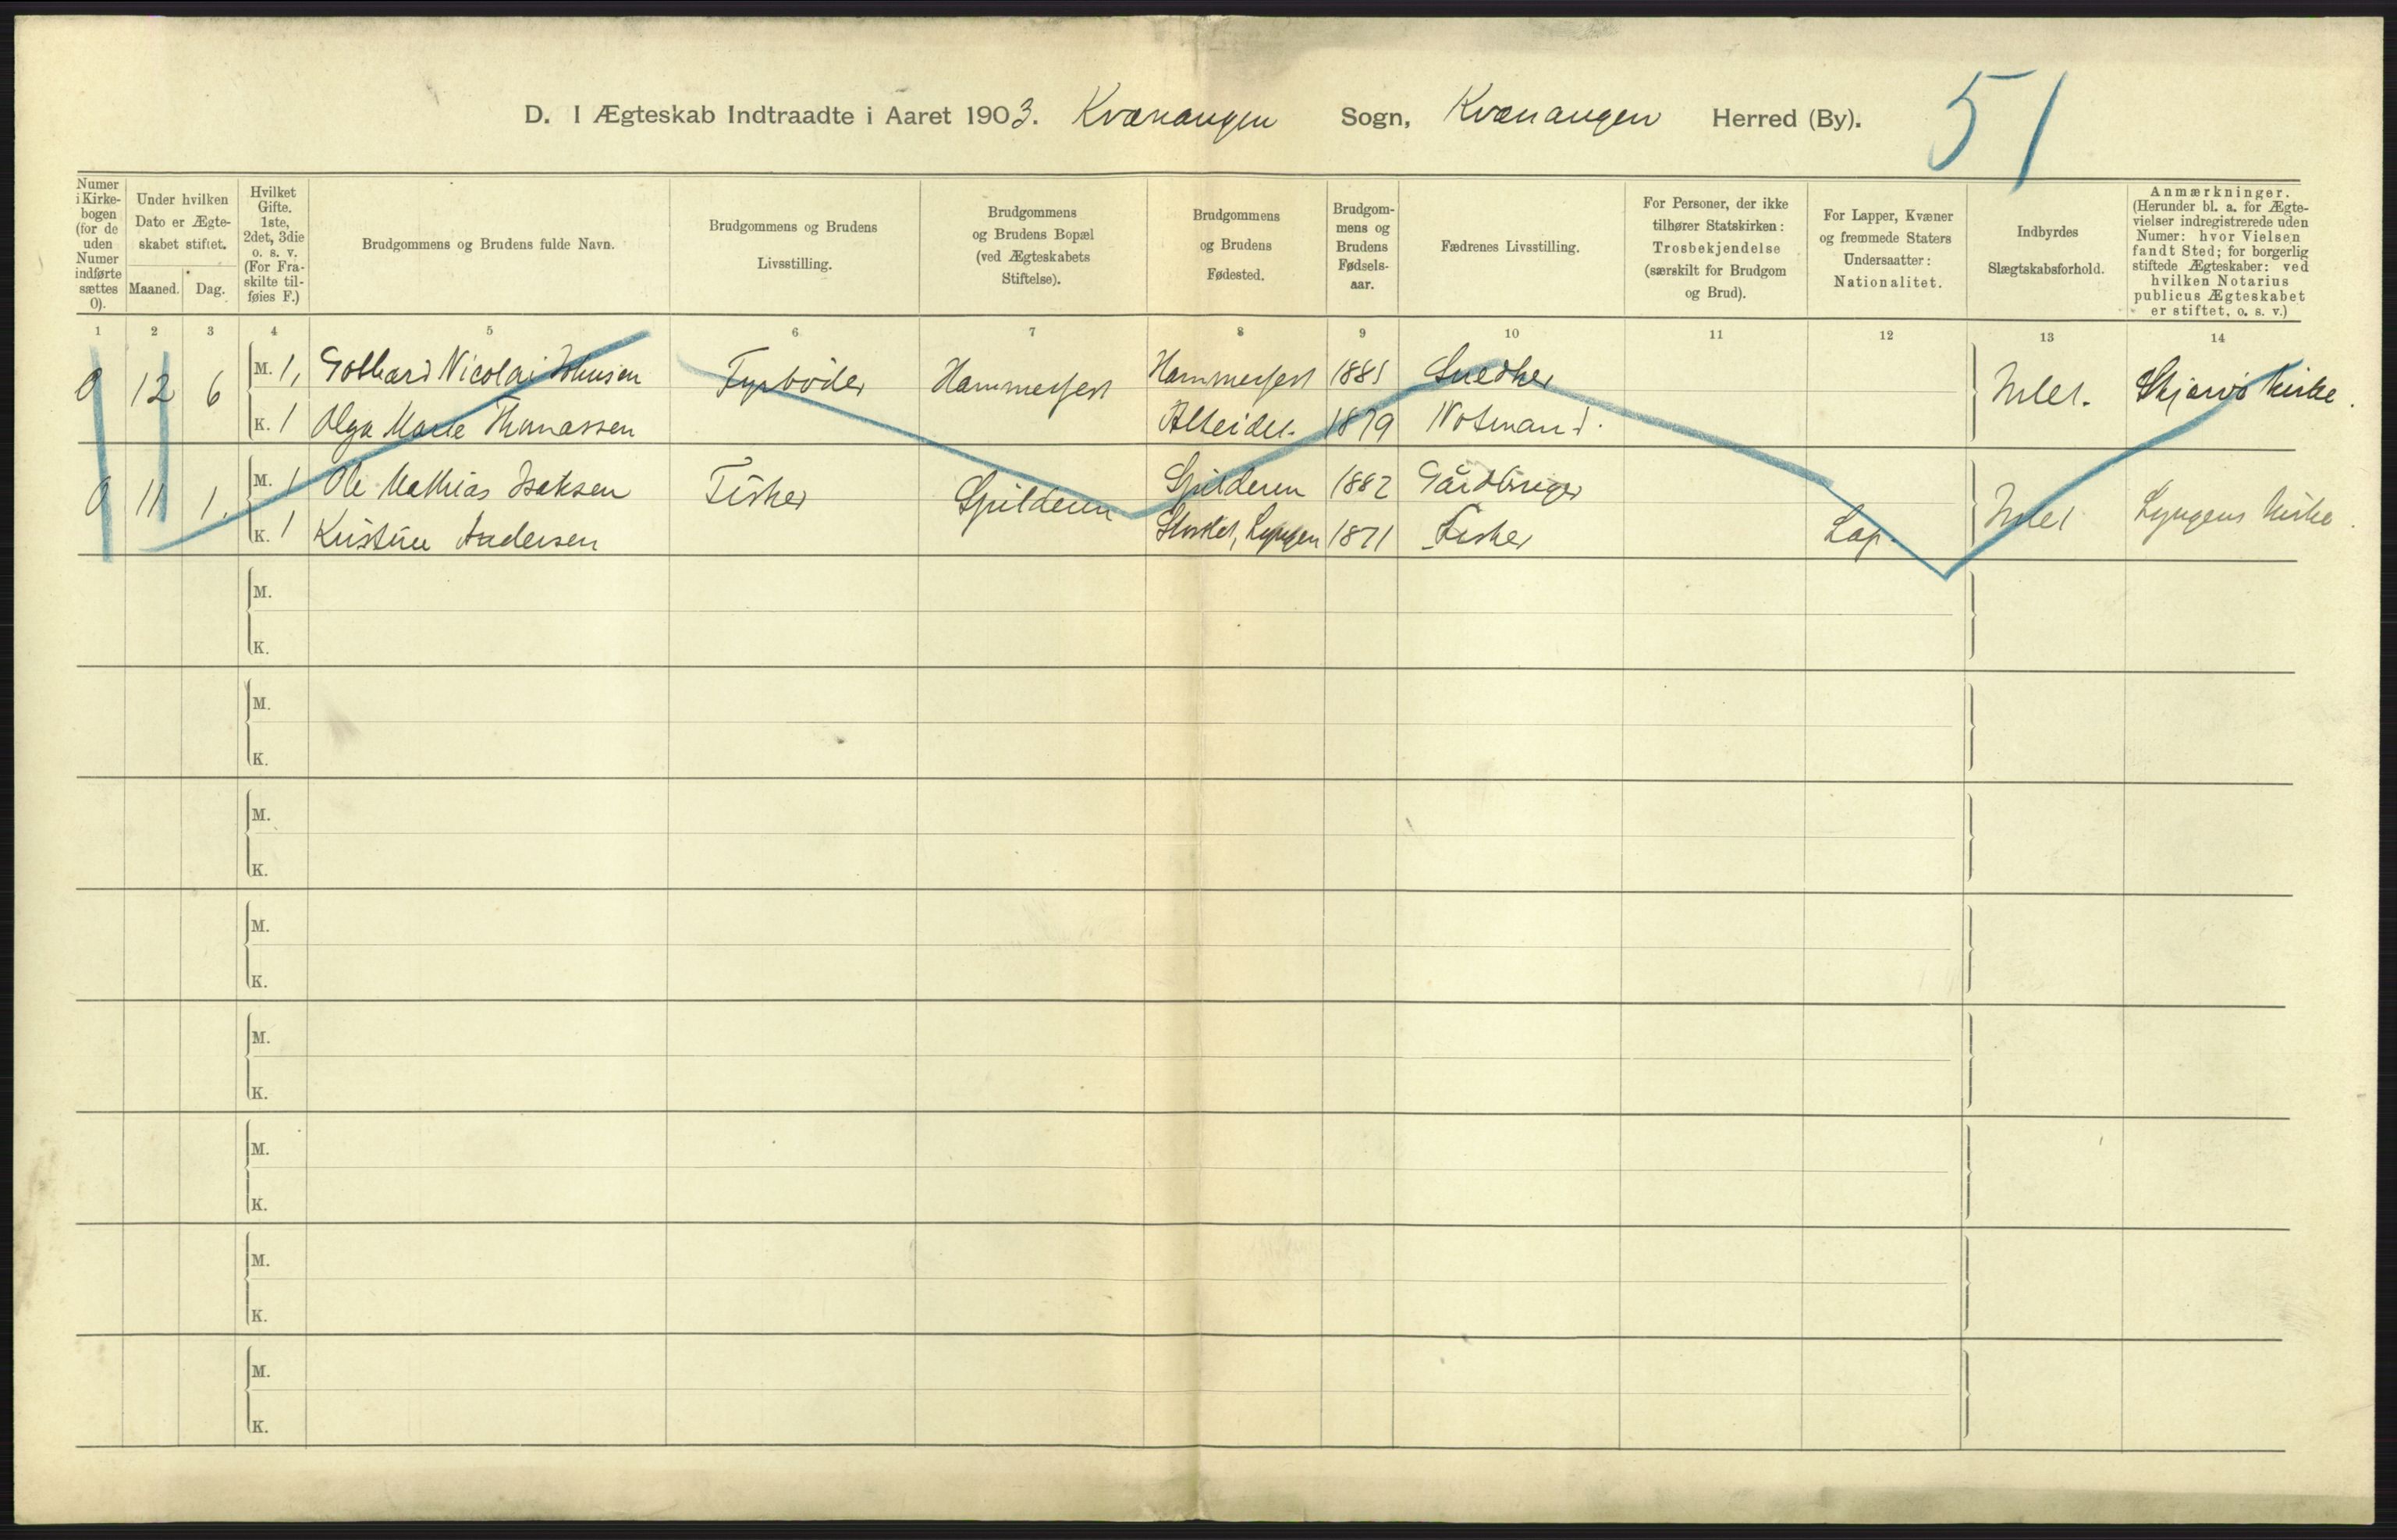 D. I Ægteskab Indtraadte i Aaret 1903. Kvænangen Sogn, Kvænangen Herred (By). 51
Numer
i Kirke-
bogen
(for de
uden
Numer
indførte
sættes
0).
Under hvilken
Dato er Ægte-
skabet stiftet.
Maaned. Dag.
Hvilket
Gifte.
1ste,
2det, 3die
o. s. v.
(For Fra-
skilte til-
føies F.)
Brudgommens og Brudens fulde Navn.
Brudgommens og Brudens
Livsstilling.
Brudgommens
og Brudens Bopæl
(ved Ægteskabets
Stiftelse).
Brudgommens
og Brudens
Fødested.
Brudgom-
mens og
Brudens
Fødsels-
aar.
Fædrenes Livsstilling.
For Personer, der ikke
tilhører Statskirken:
Trosbekjendelse
(særskilt for Brudgom
og Brud).
For Lapper, Kvæner
og fremmede Staters
Undersaatter:
Nationalitet.
Indbyrdes
Slægtskabsforhold.
Anmærkninger.
(Herunder bl. a. for Ægte-
vielser indregistrerede uden
Numer: hvor Vielsen
fandt Sted; for borgerlig
stiftede Ægteskaber: ved
hvilken Notarius
publicus Ægteskabet
er stiftet, o. s. v.)
1 2 3 4 5 6 7 8 9 10 11 12 13 14
0 12 6 M. 1, Nicolai Johnsen Fyrbøder Hammerfest Hammerfest Snedker Intet. Skjervø Kirke.
K. 1 Olga Marie Thomassen Alteidet. 1879 Notmand.
0 11 1. M. 1 Ole Mathias Isaksen Fisker Spilderen Spilderen 1882 Gårdbruger Intet Lyngens Kirke.
K. 1 Kristine Andersen Lyngen 1871 Fisker Lap.
M.
K.
M.
K.
M.
K.
M.
K.
M.
K.
M.
K.
M.
K.
M.
K.